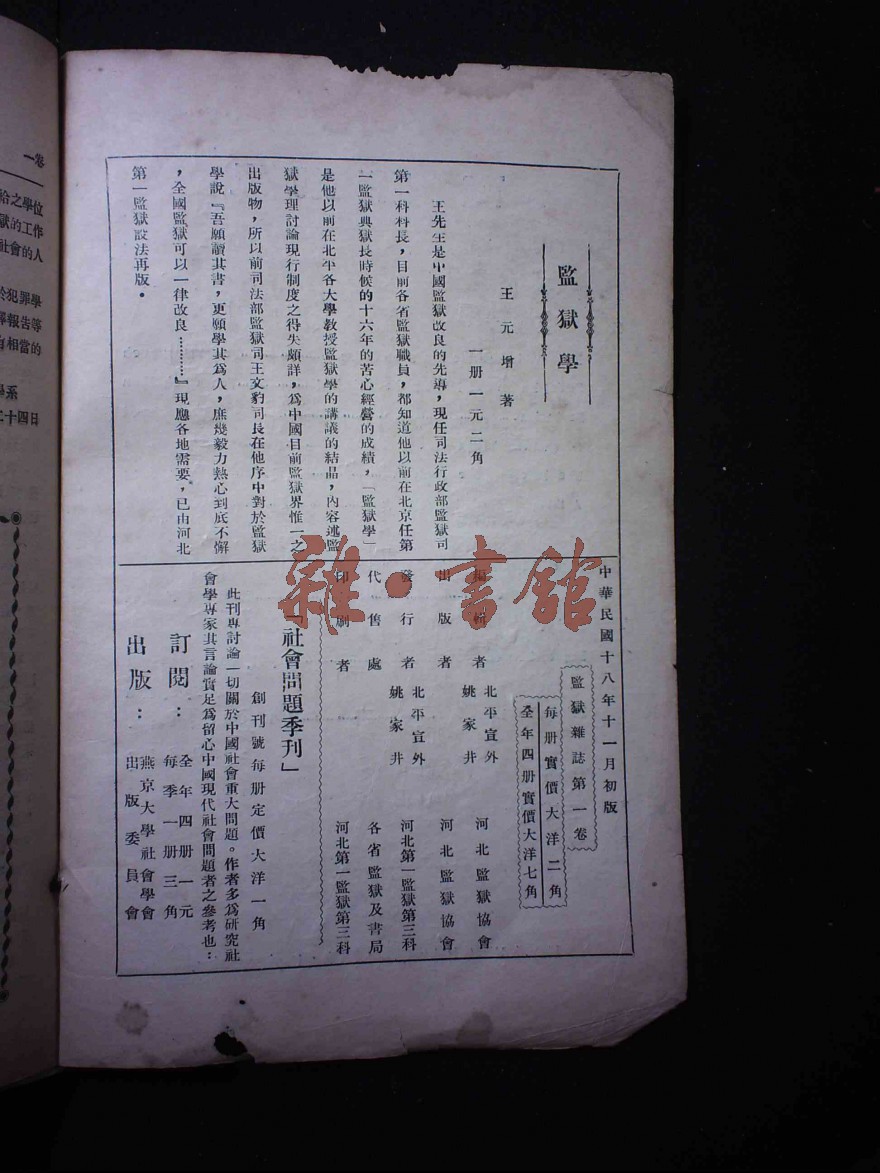 監獄學
王元增著
一册一元二角
王先生是中國監獄改良的先導，現任司法行政部監獄司
第一科科長，目前各省監獄職員，都知道他以前在北京任第
一監獄典獄長時候的十六年的苦心經營的成績，「監獄學」
是他以前在北平各大學教授監獄學的講議的結晶，內容述監
獄學理討論現行制度之得失頗詳，爲中國目前監獄界惟一之
出版物，所以前司法部監獄司王文豹司長在他序中對於監獄
學說『吾願讀其書，更願學其爲人，庶幾毅力熱心到底不懈
，全國監獄可以一律改良…………』現應各地需要，已由河北
第一監獄設法再版。
中華民國十八年十一月初版
監獄雜誌第一卷
每册實價大洋二角
全年四册實價大洋七角
編輯者 北平宣外姚家井 河北監獄協會
出版者 河北監獄協會
發行者 北平宣外姚家井 河北第一監獄第三科
代售處 各省監獄及書局
印刷者 河北第一監獄第三科
「社會問題季刊」
創刊號每册定價大洋一角
此刊專討論一切關於中國社會重大問題。作者多爲研究社
會學專家其言論實足爲留心中國現代社會問題者之參考也：
訂閱：全年四册一元
每季一册三角
出版：燕京大學社會學會
出版委員會
一卷
給之學位
獄的工作
社會的人
於犯罪學
報告等
相當的
學系
二十四日
雜·書館